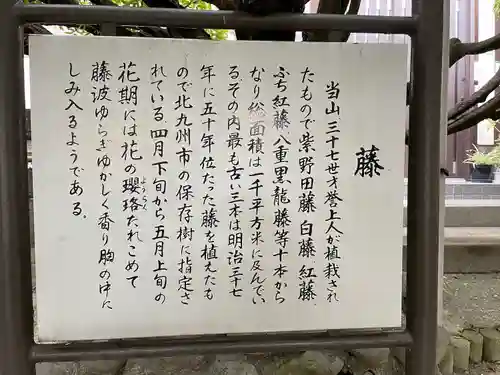 藤
当山三十七世才誉上人が植栽され
たもので紫野田藤、白藤、紅藤、
ふち紅藤、八重黒龍藤等十本から
なり総面積は一千平方米に及んでい
るその内最も古い三本は明治三十七
年に五十年位たった藤を植えたも
ので北九州市の保存樹に指定さ
れている。四月下旬から五月上旬の
花期には花の瓔珞たれこめて
ようらく
藤波ゆらぎゆかしく香り胸の中に
しみ入るようである。